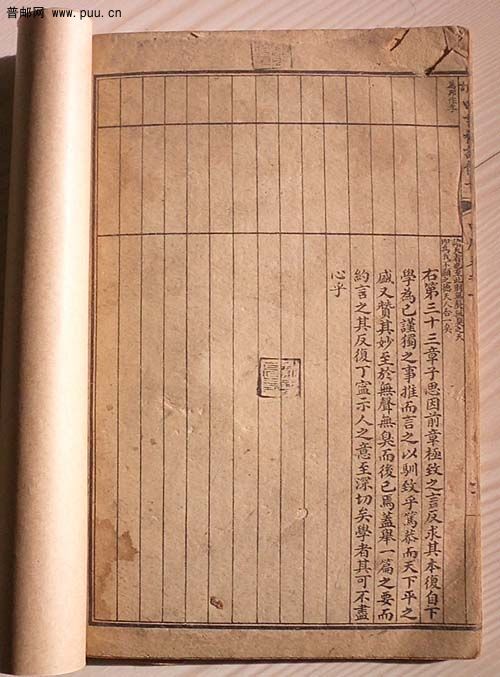 普邮网 www.puu.cn
右第三十三章子思因前章極致之言反求其本復自下
學為己謹獨之事推而言之以馴致乎篤恭而天下平之
盛又贊其妙至於無聲無臭而後已焉蓋舉一篇之要而
約言之其反復丁寧示人之意至深切矣學者其可不盡
心乎